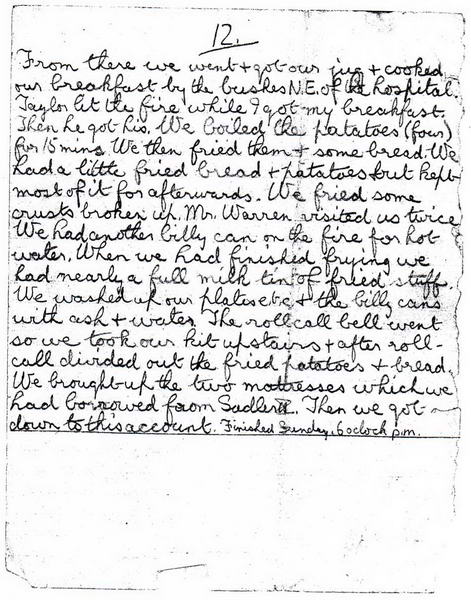 12.
From there we went + got our jug + cooked
our breakfast by the bushes N.E. of hospital.
Taylor lit the fire while I got my breakfast.
Then he got his. We boiled the patatoes (four)
for 15 mins. We then fried them + some bread. We
had a little fried bread + patatoes but kept
most of it for afterwards. We fried some
crusts broken up. Mr. Warren visited us twice
We had another billy can on the fire for hot
water. When we had finished frying we
had nearly a full milk tin of fried stuff.
We washed up our plates e.t.c. + the billy cans
with ash + water. The rollcall bell went
so we took our kit upstairs + after roll-
call divided out the fried patatoes + bread.
We brought up the two mattresses which we
had borrowed from Sadler. Then we got
down to this account. Finished Sunday, 6 oclock p.m.